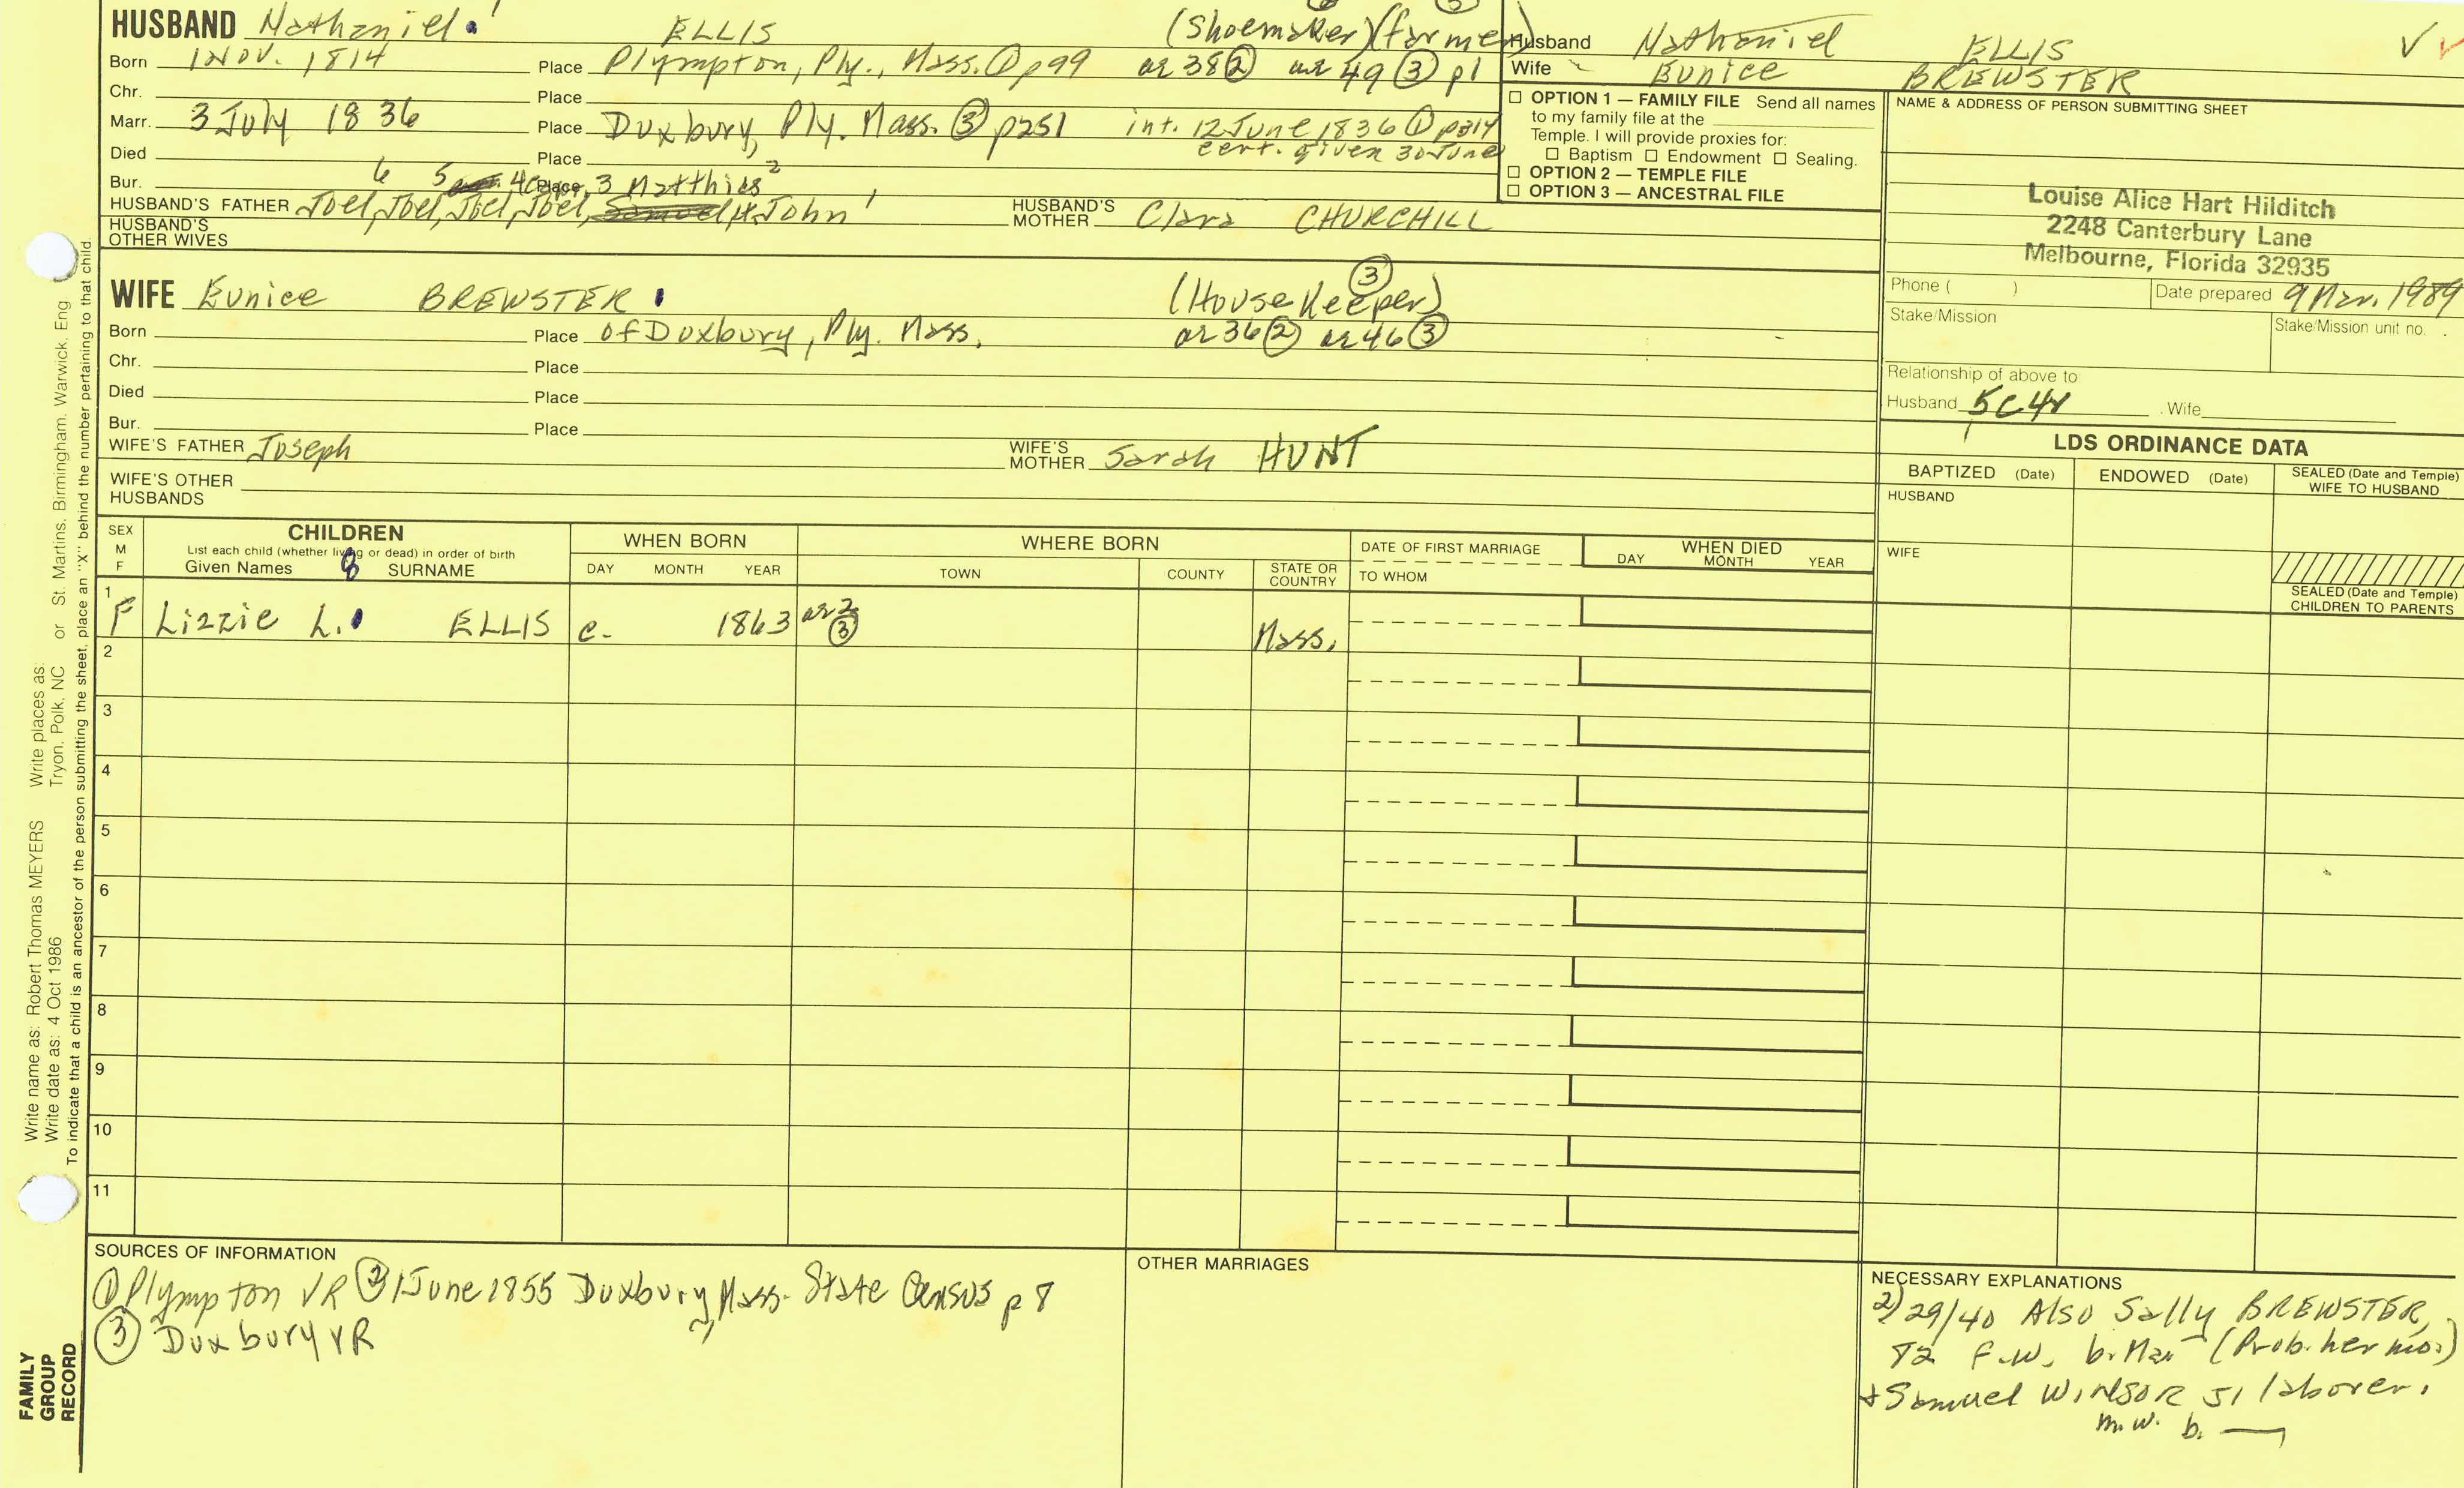 HUSBAND Nathaniel ELLIS (Shoemaker) (farmer)
Born 1 Nov. 1814 Place Plympton, Ply., Mass. ① p99 ae 38 ② ae 49 ③ p1
Chr. Place
Marr. 3 July 1836 Place Duxbury, Ply. Mass. ③ p251 int. 12 June 1836 ① p314
cert. given 30 June
Died Place
Bur. Place
6 5 4 3 Matthias 2
HUSBAND'S FATHER Joel, Joel, Joel, Joel, John 1 HUSBAND'S MOTHER Clara CHURCHILL
HUSBAND'S OTHER WIVES
Husband Nathaniel ELLIS
Wife Eunice BREWSTER
☐ OPTION 1 — FAMILY FILE Send all names
to my family file at the
Temple. I will provide proxies for:
☐ Baptism ☐ Endowment ☐ Sealing.
☐ OPTION 2 — TEMPLE FILE
☐ OPTION 3 — ANCESTRAL FILE
NAME & ADDRESS OF PERSON SUBMITTING SHEET
Louise Alice Hart Hilditch
2248 Canterbury Lane
Melbourne, Florida 32935
Phone ( ) Date prepared 9 Mar. 1989
Stake/Mission Stake/Mission unit no.
Relationship of above to
Husband 5C4r Wife
WIFE Eunice BREWSTER (Housekeeper) ③
Born Place of Duxbury, Ply. Mass. ae 36 ② ae 46 ③
Chr. Place
Died Place
Bur. Place
WIFE'S FATHER Joseph WIFE'S MOTHER Sarah HUNT
WIFE'S OTHER HUSBANDS
LDS ORDINANCE DATA
BAPTIZED (Date) ENDOWED (Date) SEALED (Date and Temple) WIFE TO HUSBAND
HUSBAND
WIFE
SEALED (Date and Temple) CHILDREN TO PARENTS
SEX M F
CHILDREN
List each child (whether living or dead) in order of birth
Given Names SURNAME
WHEN BORN
DAY MONTH YEAR
WHERE BORN
TOWN COUNTY STATE OR COUNTRY
DATE OF FIRST MARRIAGE
TO WHOM
WHEN DIED
DAY MONTH YEAR
1 F Lizzie L. ELLIS c. 1863 ae 2 ③ Mass.
2
3
4
5
6
7
8
9
10
11
SOURCES OF INFORMATION
① Plympton VR ② 1 June 1855 Duxbury, Mass. State Census p 8
③ Duxbury VR
OTHER MARRIAGES
NECESSARY EXPLANATIONS
2) 29/40 Also Sally BREWSTER,
72 f.w. b. Mas (Prob. her mo.)
+ Samuel WINSOR 51 laborer.
m.w. b. —
Write name as: Robert Thomas MEYERS Write places as: Tryon, Polk, NC or St. Martins, Birmingham, Warwick, Eng
Write date as: 4 Oct 1986
To indicate that a child is an ancestor of the person submitting the sheet, place an "X" behind the number pertaining to that child.
FAMILY
GROUP
RECORD